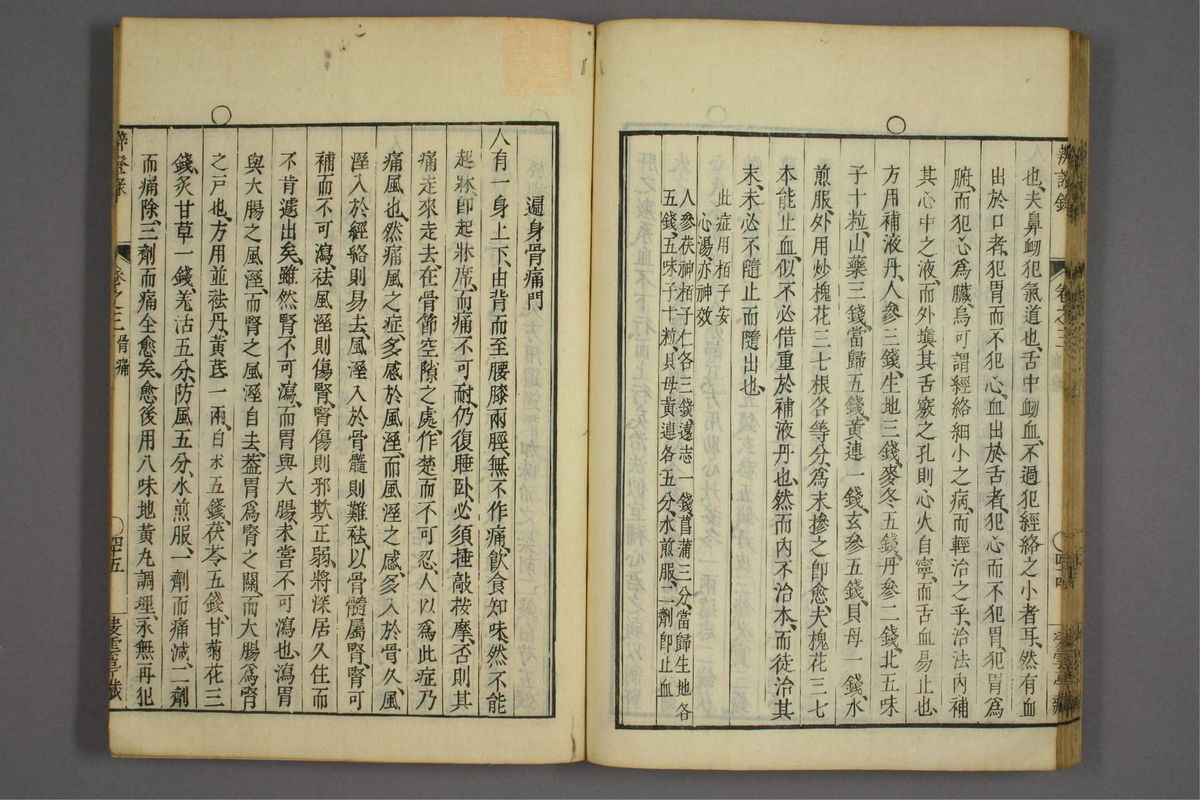 辨證錄 卷之三
也、夫鼻衂犯氣道也、舌中衂血、不過犯經絡之小者耳、然有血
出於口者、犯胃而不犯心、血出於舌者、犯心而不犯胃、犯胃爲
腑、而犯心爲臟、烏可謂經絡細小之病、而輕治之乎、治法內補
其心中之液、而外塡其舌竅之孔、則心火自寧、而舌血易止也、
方用補液丹、人參三錢、生地三錢、麥冬五錢、丹參二錢、北五味
子十粒、山藥三錢、當歸五錢、黃連一錢、玄參五錢、貝母一錢、水
煎服、外用炒槐花三七根各等分、爲末摻之卽愈、夫槐花三七
本能止血、似不必借重於補液丹也、然而內不治本、而徒治其
末、未必不隨止而隨出也、
此症用栢子安
心湯亦神效
人參茯神栢子仁各三錢遠志一錢菖蒲三分、當歸生地各
五錢、五味子十粒、貝母黃連各五分、水煎服、二劑卽止血
○
遍身骨痛門
人有一身上下、由背而至腰膝兩脛、無不作痛、飲食知味、然不能
起牀、卽起牀席、而痛不可耐、仍復睡臥、必須捶敲按摩、否則其
痛走來走去、在骨節空隙之處、作楚而不可忍、人以爲此症乃
痛風也、然痛風之症、多感於風溼、而風溼之感、多入於骨久、風
溼入於經絡則易去、風溼入於骨髓則難祛、以骨髓屬腎、腎可
補而不可瀉、祛風溼則傷腎、腎傷則邪欺正弱、將深居久住而
不肯遽出矣、雖然腎不可瀉、而胃與大腸、未嘗不可瀉也、瀉胃
與大腸之風溼、而腎之風溼自去、蓋胃爲腎之關、而大腸爲腎
之戸也、方用並祛丹、黃芪一兩、白朮五錢、茯苓五錢、甘菊花三
錢、炙甘草一錢、羌活五分、防風五分、水煎服、一劑而痛減、二劑
而痛除、三劑而痛全愈矣、愈後用八味地黃丸調理、永無再犯
○
卷之三 骨痛 ○四十五